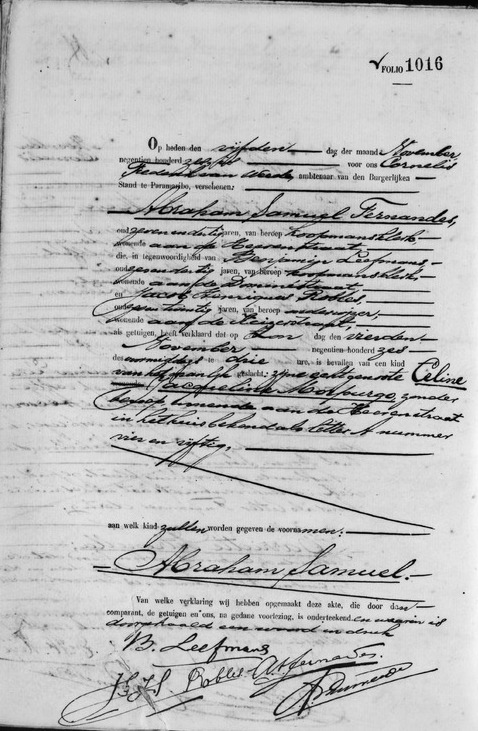 FOLIO 1016
Op heden den vijfden dag der maand November
negentien honderd zes voor ons Cornelis
ambtenaar van den Burgerlijken
Stand te Paramaribo, verschenen:
Abraham Samuel Fernandes,
oud jaren, van beroep koopmansklerk
wonende aan de Heerenstraat
die, in tegenwoordigheid van Benjamin Leefmans
oud jaren, van beroep koopmansklerk
wonende aan de Dominéstraat
en Jacob Henriques Robles,
oud jaren, van beroep
wonende aan de Keizerstraat,
als getuigen, heeft verklaard dat op den vierden
November negentien honderd zes
des voormiddags te drie ure, is bevallen van een kind
van het manlijk geslacht: zijne echtgenoote Celine
Jacqueline Morpurgo, zonder
beroep, wonende aan de Heerenstraat
in het huis bekend als letter A nummer
vier en vijftig,
aan welk kind zullen worden gegeven de voornamen:
Abraham Samuel.
Van welke verklaring wij hebben opgemaakt deze akte, die door den
comparant, de getuigen en ons, na gedane voorlezing, is onderteekend en waarin is
doorgehaald een woord in druk
B. Leefmans
Robles A. S. Fernandes